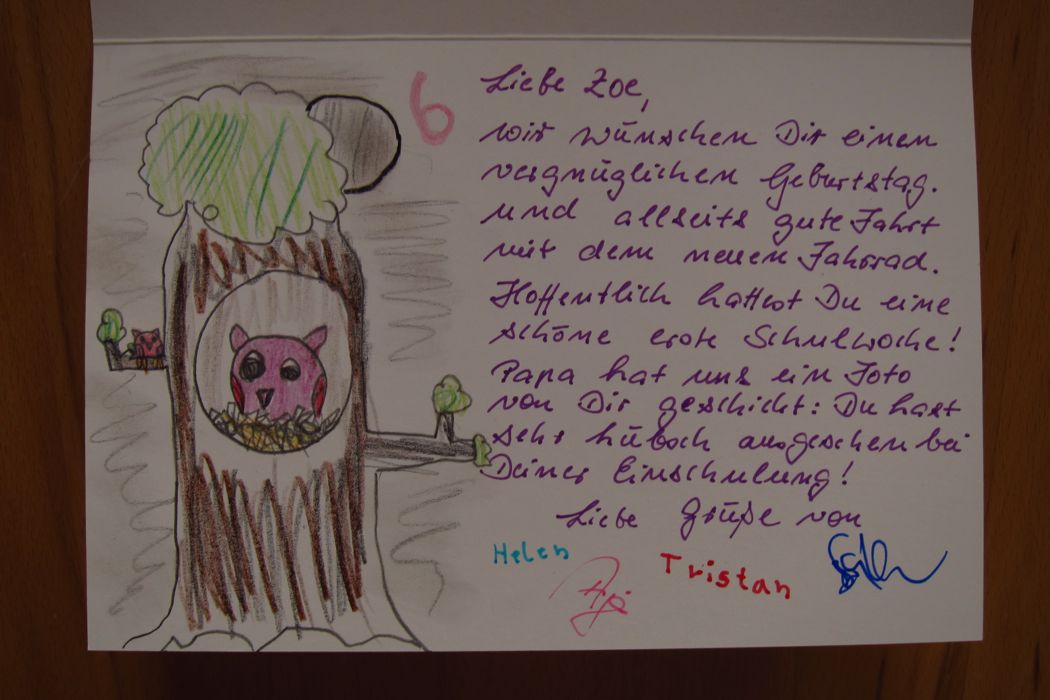 6
Liebe Zoe,
wir wünschen Dir einen
vergnüglichen Geburtstag.
und allseits gute Fahrt
mit dem neuen Fahrrad.
Hoffentlich hattest Du eine
schöne erste Schulwoche!
Papa hat uns ein Foto
von Dir geschickt: Du hast
sehr hübsch ausgesehen bei
Deiner Einschulung!
Liebe Grüße von
Helen
Tristan